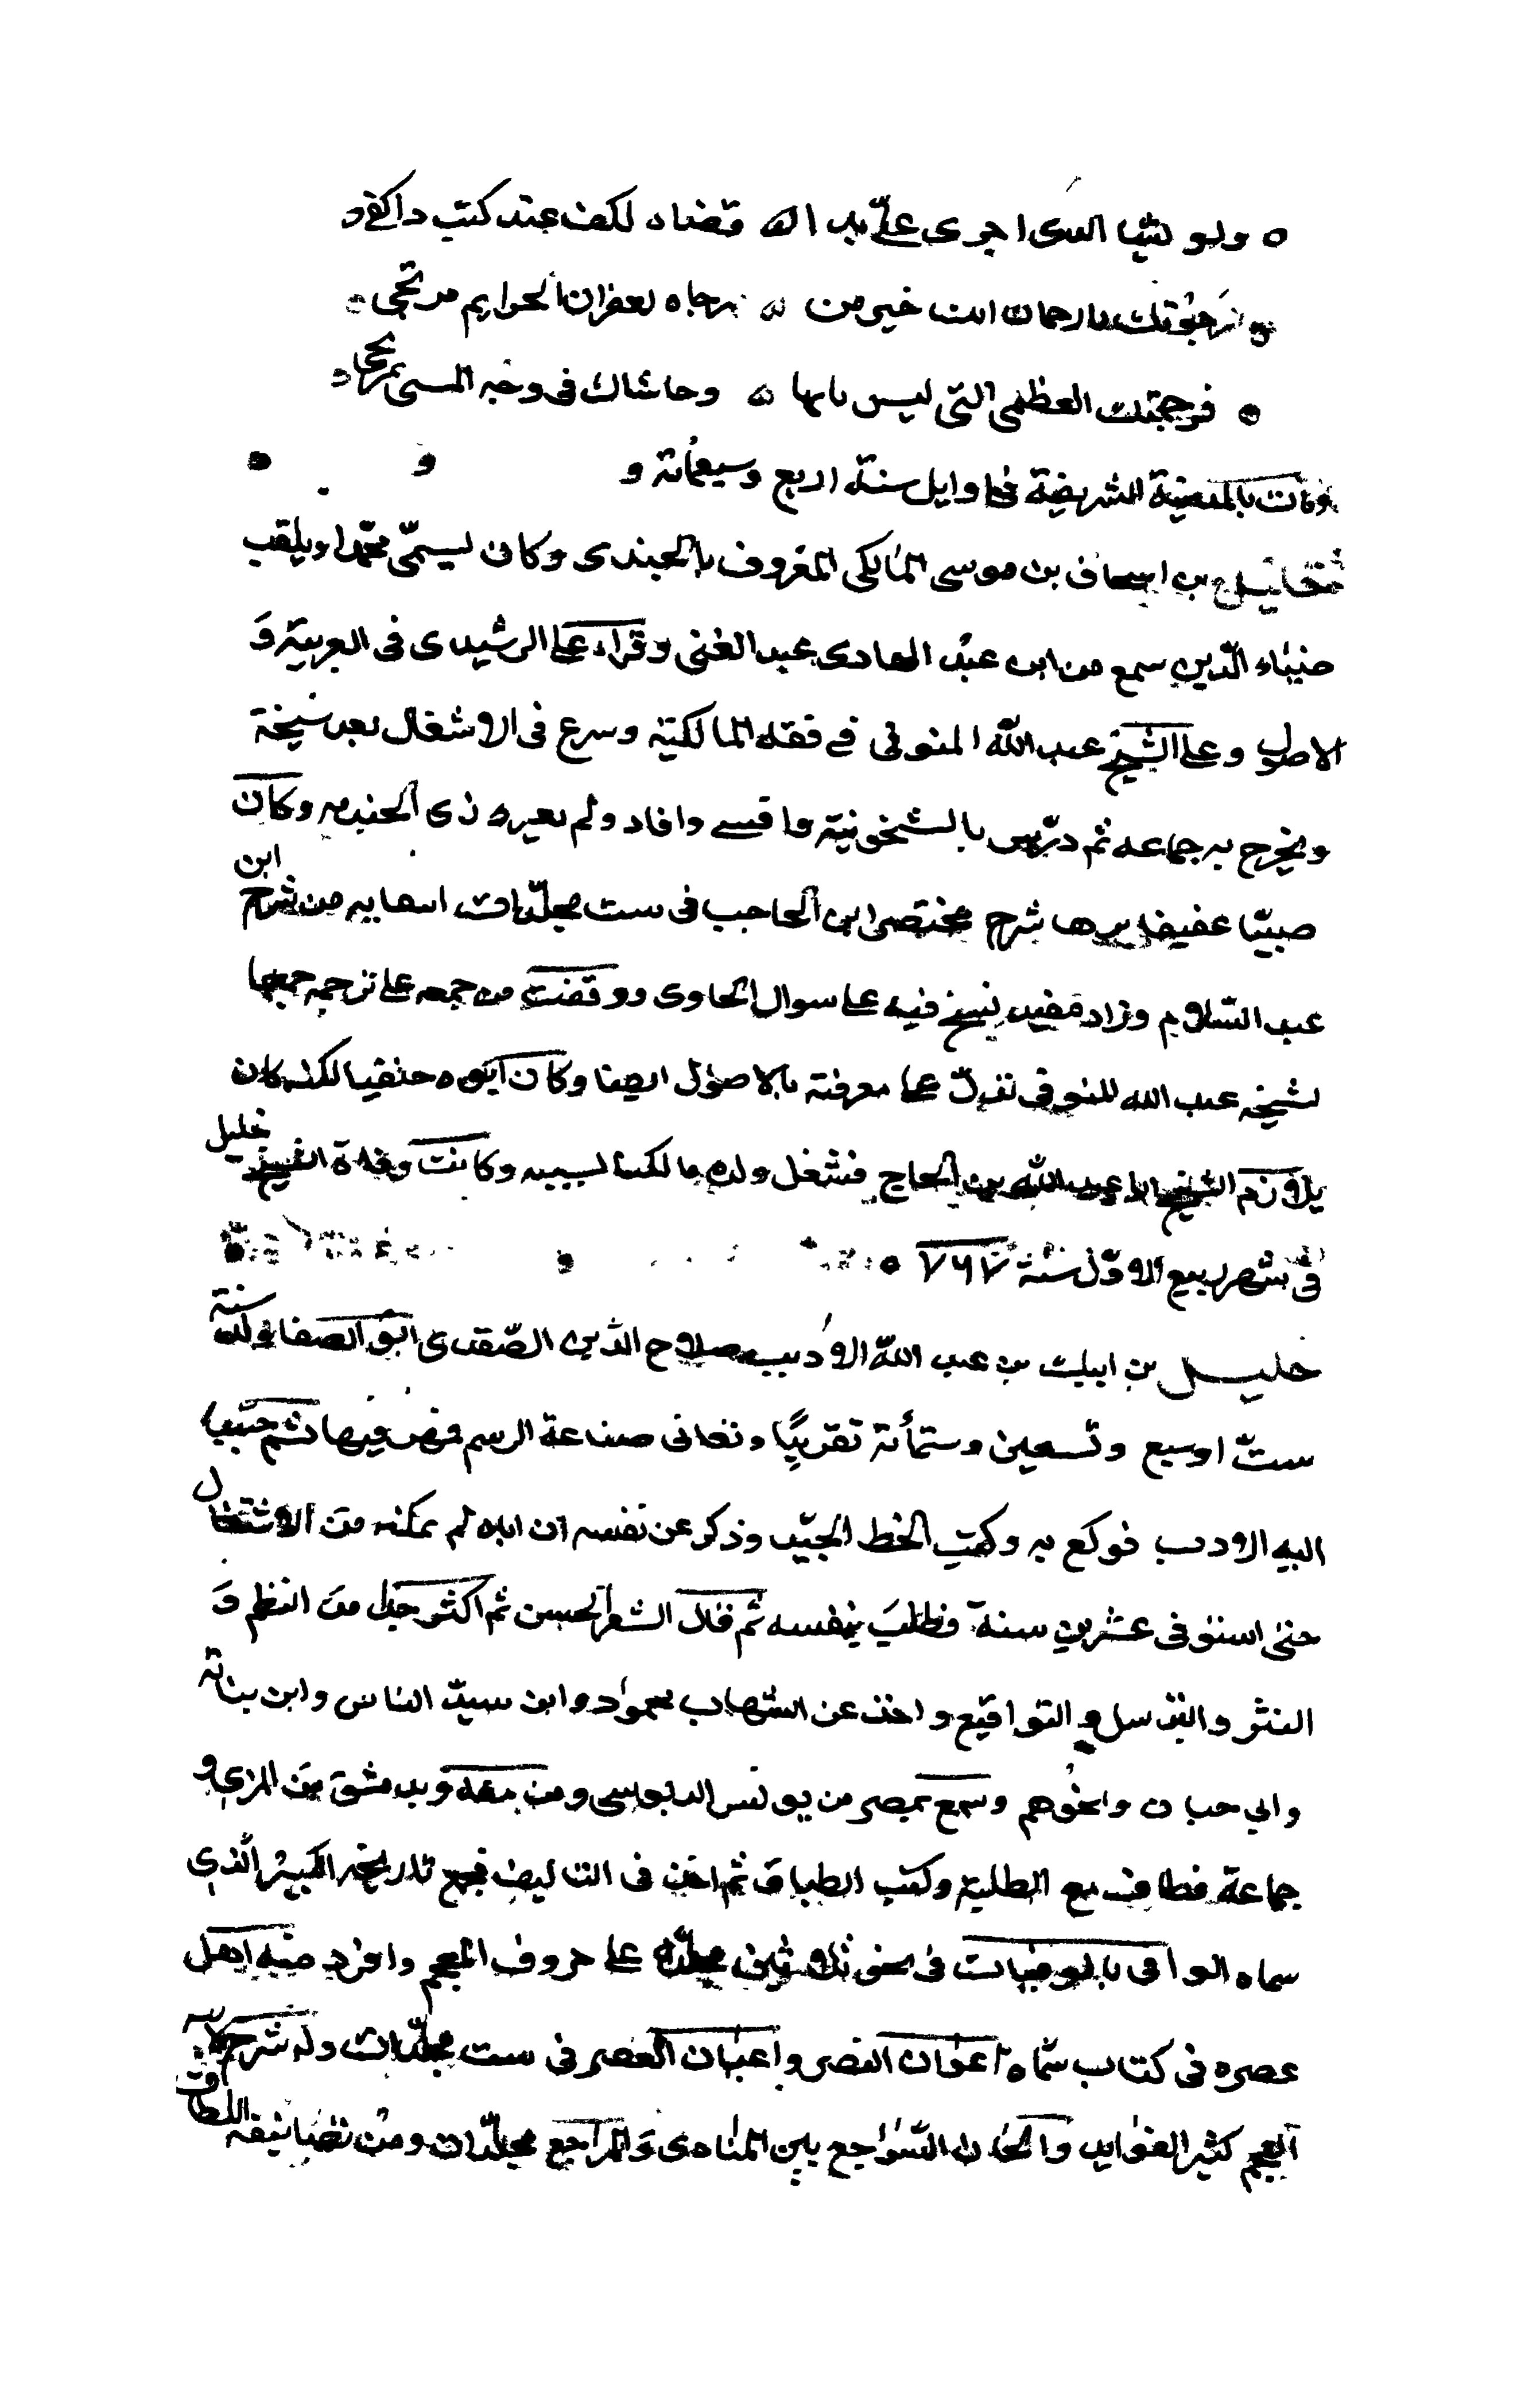 ولو شيا الذى اجرى على يد اله قضاه لكف عند كتب داكفر
رجوتك يا رحمان انت خير من رجاه لغفران الجرايم مرتجى
فرحمتك العظمى التى ليس بابها وحاشاك فى وجه المسى بمرتجا
ومات بالمدينة الشريفة فى اوايل سنة اربع وسبعمائة و
خليل بن اسحاق بن موسى المالكى المعروف بالجندى وكان يسمّى محمّدا ويلقب
ضياء الدّين سمع من ابن عبد الهادى عبد الغنى وقراء على الرشيدى فى العربية وَ
الاصول وعلى الشيخ عبد اللّه المنوفى فى فقه المالكية وسرع فى الاشغال بعد شيخة
وتخرج به جماعه ثم درّس بالشيخونية وافتى وافاد ولم يغيره زى الجنديه وكان
صيّنا عفيفا نزها شرح مختصر ابن الحاجب فى ست مجلّدات انتقاه من شرح ابن
عبد السّلام وزاد فيه علی سوال الحاوى ووقفت من جمعه على ترجمه جمعها
لشيخه عبد الله المنوفى تدلّ على معرفته بالاصول ايضا وكان ابوه حنفيا لكنه كان
يلازم الشيخ ابا عبد اللّه بن الحاج فشغل ولده مالكيا بسببه وكانت وفاة الشيخ خليل
فى شهر ربيع الاوّل سنة ٧٦٧
خليل بن ايبك بن عبد اللّه الاديب صلاح الدّين الصّفدى ابو الصفا ولد سنة
ستّ او سبع وتسعين وستمأنة تقريبًا وتعانى صناعة الرسم فمهر فيها ثم حبّب
اليه الادب فولع به وكتب الخط الجيّد وذكر عن نفسه ان اباه لم يمكنه من الاشتغال
حتى استوفى عشرين سنة فطلب بنفسه ثم قال الشعر الحسن ثم اكثر جدا من النظم وَ
النثر والترسل والتواقيع واخذ عن الشهاب محمود وابن سيّد الناس وابن نباته
وابى حيان ونحوهم وسمع بمصر من يونس الدبوسى ومن معه وبدمشق من المزى و
جماعة فطاف مع الطلبة وكتب الطباق ثم اخذ فى التاليف فجمع تاريخه الكبير الّذى
سماه الوافى بالوفيات فى نحو ثلاثين مجلّدة على حروف المعجم وافرد منه اهل
عصره فى كتاب سمّاه اعوان النصر واعيان العصر فى ست مجلّدات وله شرح لامية
العجم كثير الفوايد والحان السّواجع بين المبادى والمراجع مجلّدات ومن تصانيفه اللطاف